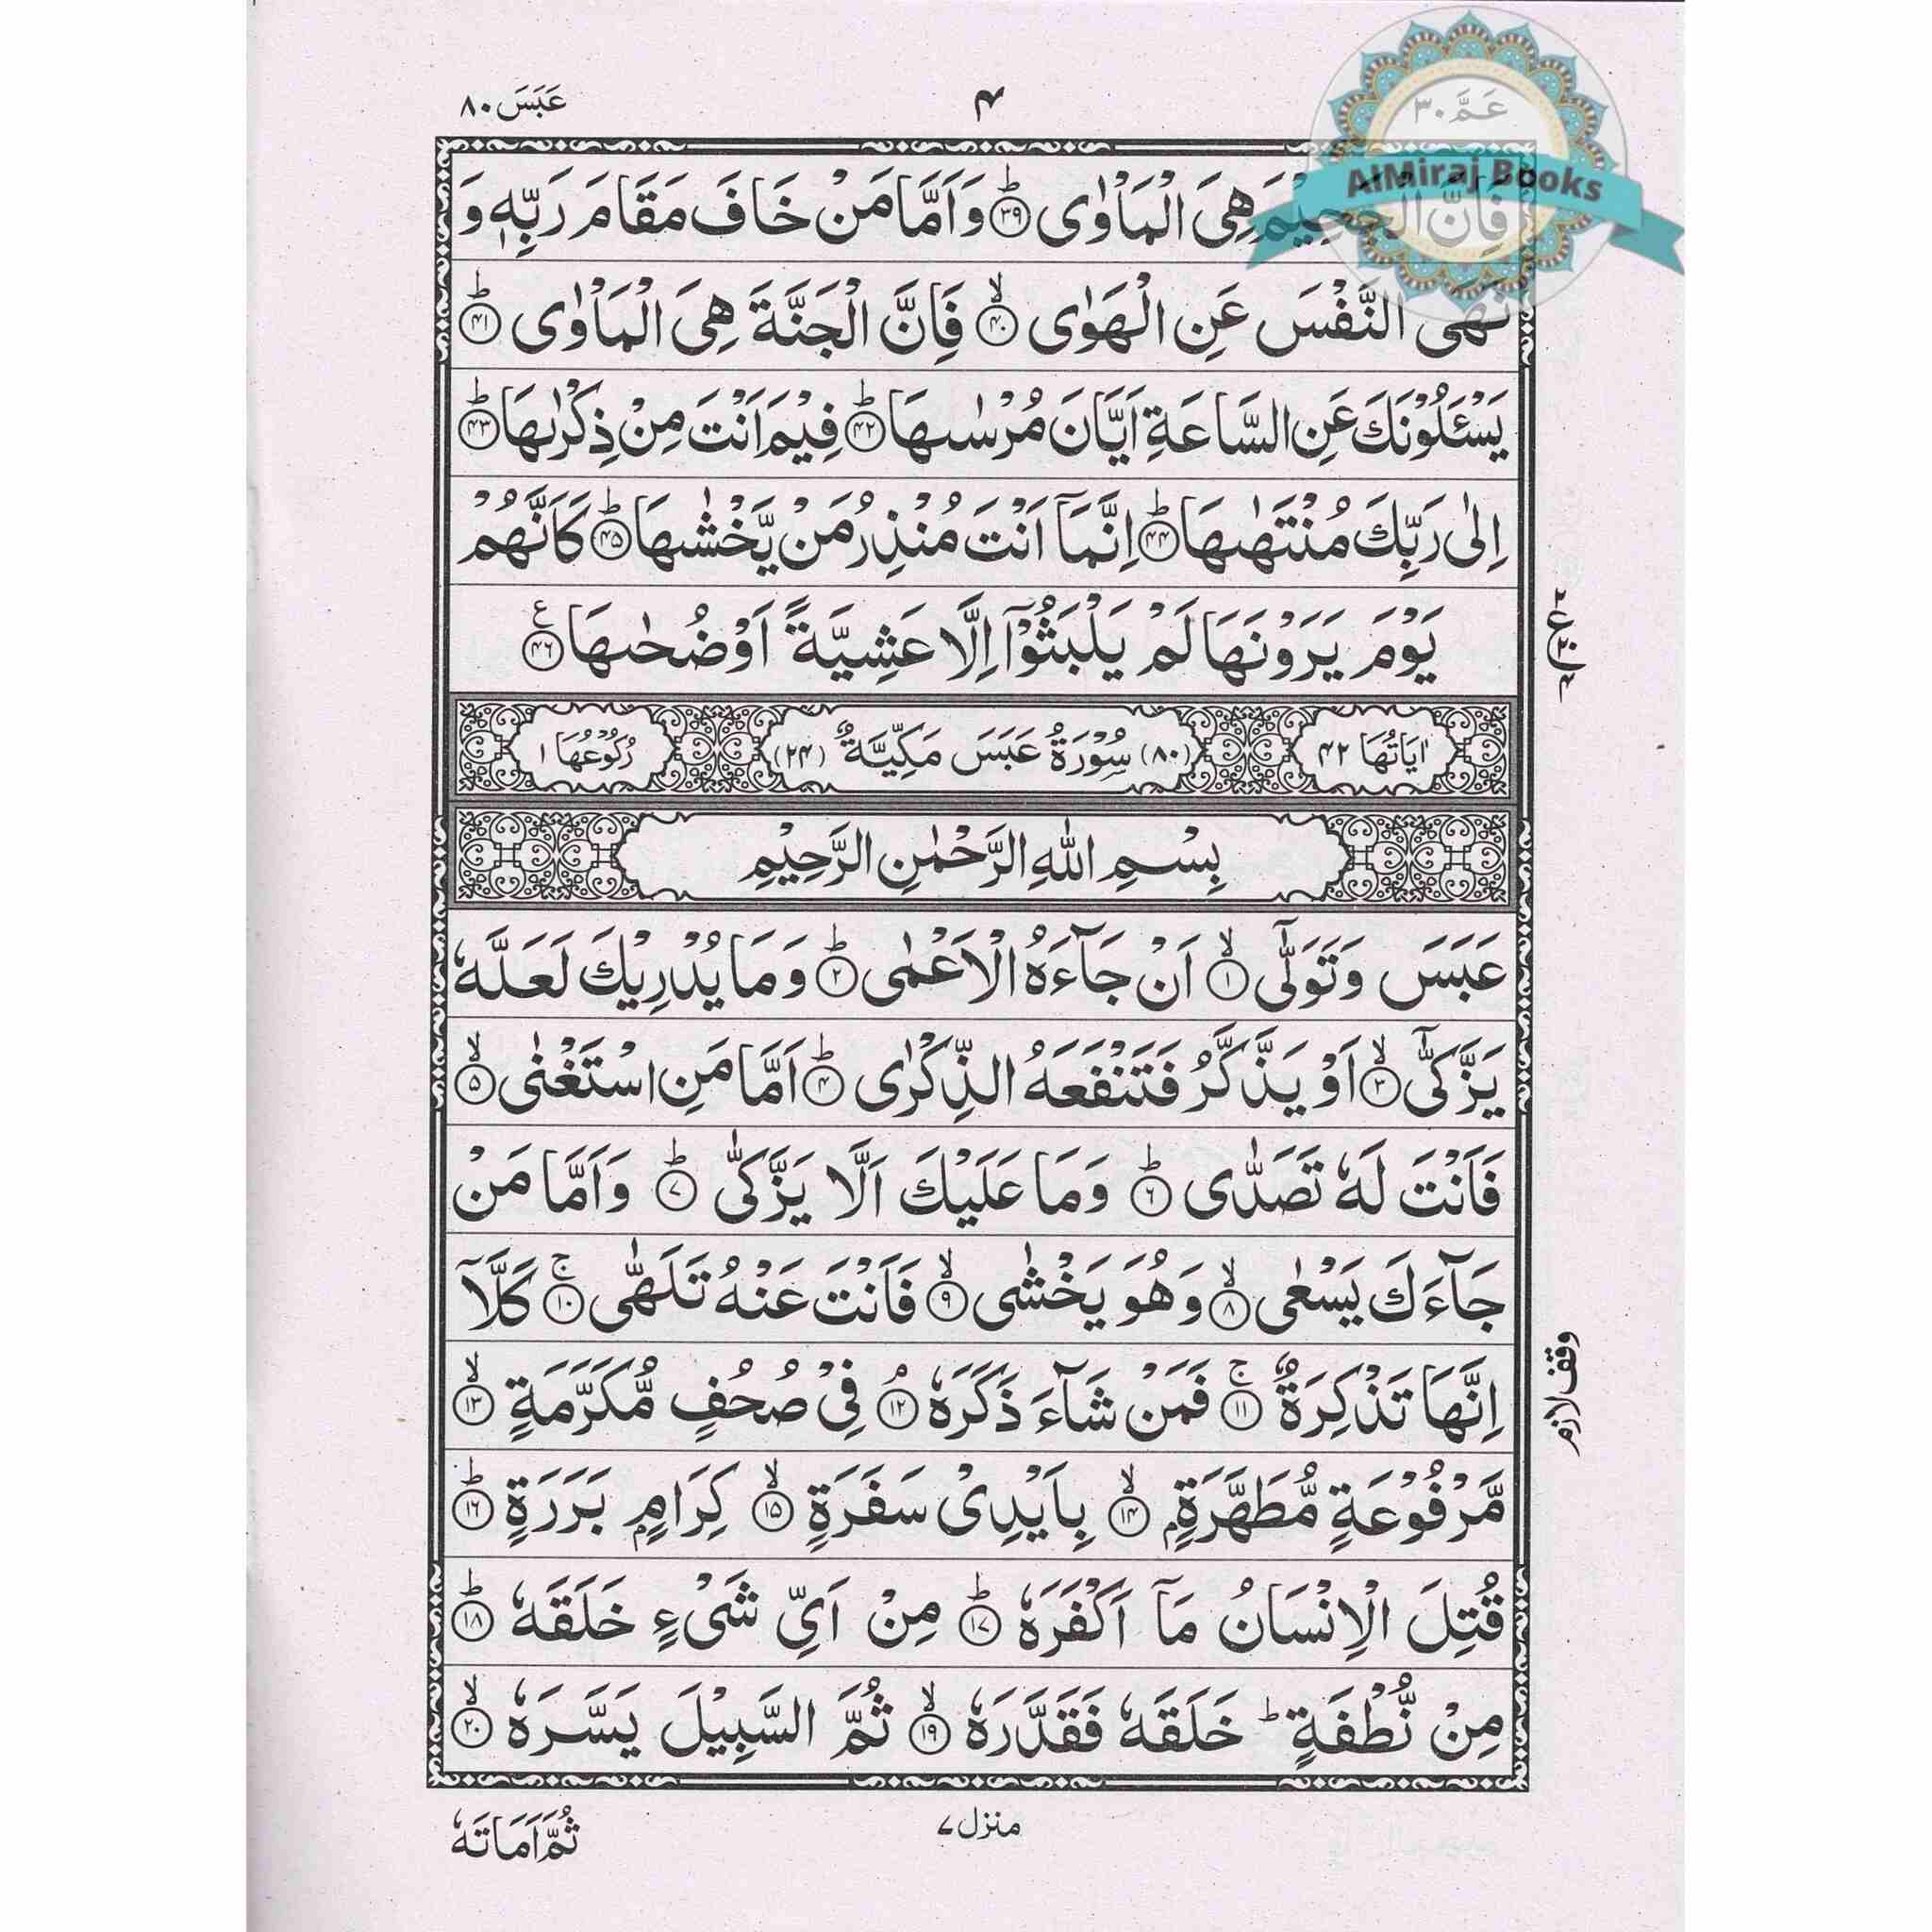 عَمَّ ٣٠
٤
عَبَسَ ٨٠
AlMiraj Books
فَاِنَّ الْجَحِيْمَ هِىَ الْمَاْوٰى ؕ‏ ﴿۳۹﴾ وَاَمَّا مَنْ خَافَ مَقَامَ رَبِّهٖ وَ
نَهَى النَّفْسَ عَنِ الْهَوٰى ۙ‏ ﴿۴۰﴾ فَاِنَّ الْجَنَّةَ هِىَ الْمَاْوٰى ؕ‏ ﴿۴۱﴾
يَسْـَٔلُوْنَكَ عَنِ السَّاعَةِ اَيَّانَ مُرْسٰٮهَا ؕ‏ ﴿۴۲﴾ فِيْمَ اَنْتَ مِنْ ذِكْرٰٮهَا ؕ‏ ﴿۴۳﴾
اِلٰى رَبِّكَ مُنْتَهٰٮهَا ؕ‏ ﴿۴۴﴾ اِنَّمَاۤ اَنْتَ مُنْذِرُ مَنْ يَّخْشٰٮهَا ؕ‏ ﴿۴۵﴾ كَاَنَّهُمْ
يَوْمَ يَرَوْنَهَا لَمْ يَلْبَثُوْۤا اِلَّا عَشِيَّةً اَوْ ضُحٰٮهَا ﴿۴۶﴾ ع
اٰيَاتُهَا ٤٢ (٨٠) سُوْرَةُ عَبَسَ مَكِّيَّةٌ (٢٤) رُكُوْعُهَا ١
بِسْمِ اللّٰهِ الرَّحْمٰنِ الرَّحِيْمِ
عَبَسَ وَتَوَلّٰٓى ۙ‏ ﴿۱﴾ اَنْ جَآءَهُ الْاَعْمٰى ؕ‏ ﴿۲﴾ وَمَا يُدْرِيْكَ لَعَلَّهٗ
يَزَّكّٰٓى ۙ‏ ﴿۳﴾ اَوْ يَذَّكَّرُ فَتَنْفَعَهُ الذِّكْرٰى ؕ‏ ﴿۴﴾ اَمَّا مَنِ اسْتَغْنٰى ۙ‏ ﴿۵﴾
فَاَنْتَ لَهٗ تَصَدّٰى ؕ‏ ﴿۶﴾ وَمَا عَلَيْكَ اَلَّا يَزَّكّٰى ؕ‏ ﴿۷﴾ وَاَمَّا مَنْ
جَآءَكَ يَسْعٰى ۙ‏ ﴿۸﴾ وَهُوَ يَخْشٰى ۙ‏ ﴿۹﴾ فَاَنْتَ عَنْهُ تَلَهّٰى ۚ‏ ﴿۱۰﴾ كَلَّاۤ
اِنَّهَا تَذْكِرَةٌ ۚ‏ ﴿۱۱﴾ فَمَنْ شَآءَ ذَكَرَهٗ ۘ‏ ﴿۱۲﴾ فِىْ صُحُفٍ مُّكَرَّمَةٍ ۙ‏ ﴿۱۳﴾
وقف لازم
مَّرْفُوْعَةٍ مُّطَهَّرَةٍ ۢ ۙ‏ ﴿۱۴﴾ بِاَيْدِىْ سَفَرَةٍ ۙ‏ ﴿۱۵﴾ كِرَامٍ ۢ بَرَرَةٍ ؕ‏ ﴿۱۶﴾
قُتِلَ الْاِنْسَانُ مَاۤ اَكْفَرَهٗ ؕ‏ ﴿۱۷﴾ مِنْ اَىِّ شَىْءٍ خَلَقَهٗ ؕ‏ ﴿۱۸﴾
مِنْ نُّطْفَةٍ ؕ خَلَقَهٗ فَقَدَّرَهٗ ۙ‏ ﴿۱۹﴾ ثُمَّ السَّبِيْلَ يَسَّرَهٗ ۙ‏ ﴿۲۰﴾
منزل ٧
ثُمَّ اَمَاتَهٗ